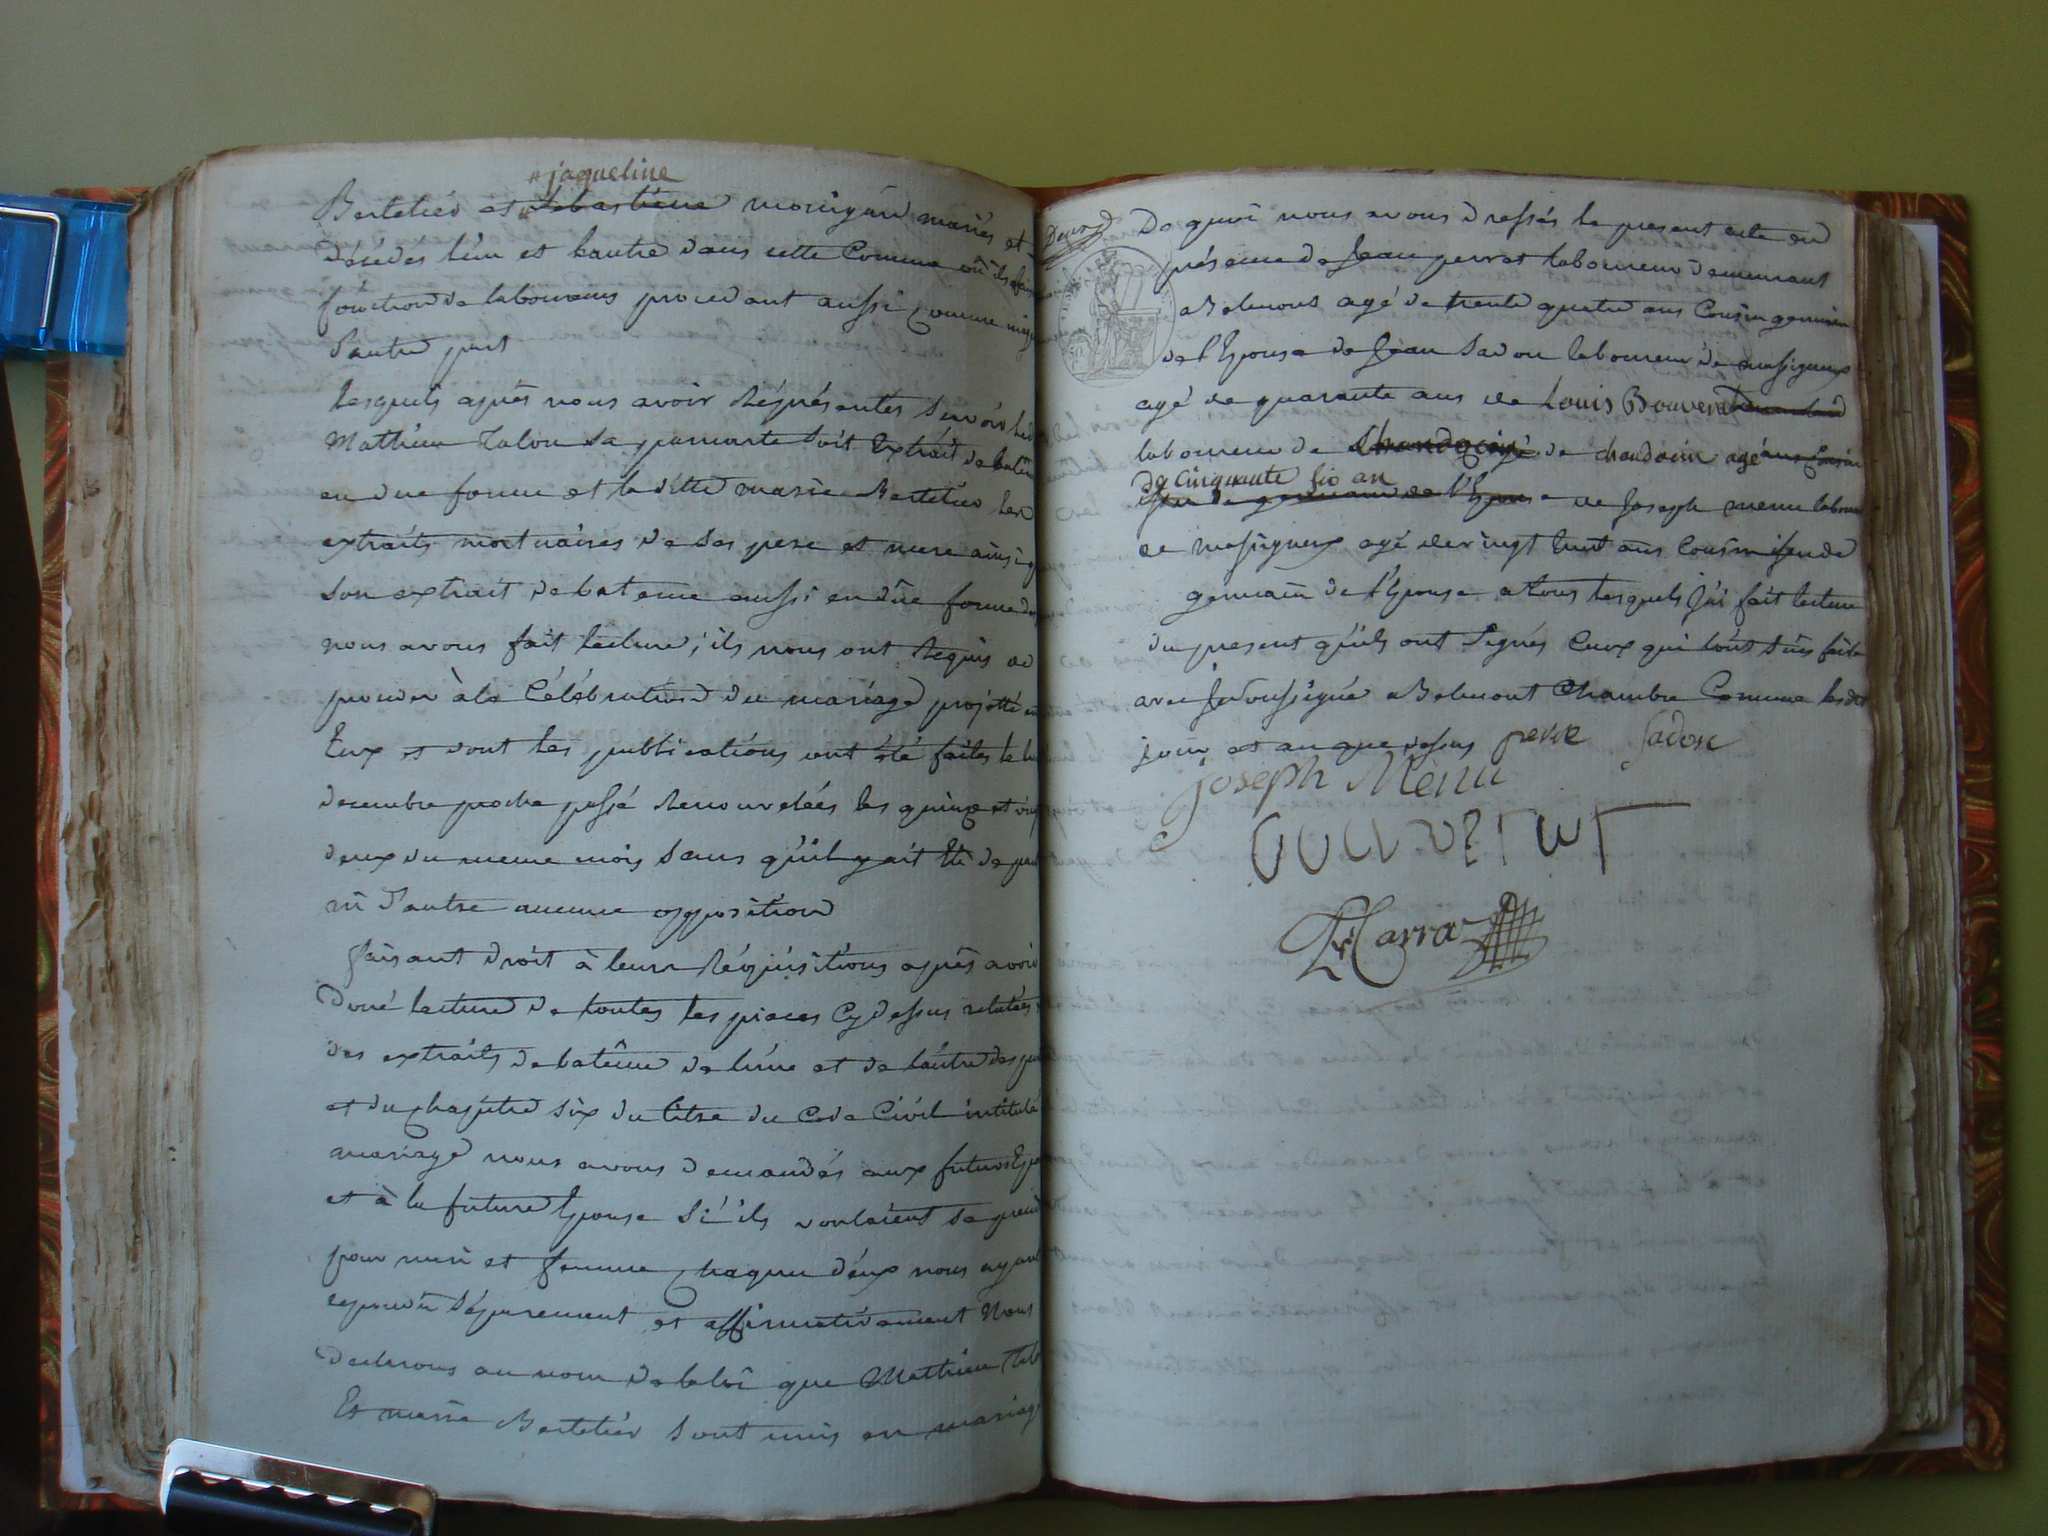 # jaqueline
Bertelier et Sebastiene mariés et
décédes l'un et lautre dans cette Commune où ils
fonction de laboureurs procedant aussi comme
d'autre part
lesquels après nous avoir réprésentés savoir
Mathieu Talon sa patente soit Extrait de
en due forme et la ditte marie Bertelier les
extraits mortuaires de ses pere et mere ainsi q
son extrait de bateme aussi en düe forme
nous avons fait lecture; ils nous ont requis de
proceder à la Célébration du mariage projetté
Eux et dont les publications ont été faites le
decembre proche passé renouvelées les quinze et
deux du meme mois sans qu'il y ait Eu de part
ni d'autre aucune opposition
faisant droit à leurs réquisitions après avoir
doné lecture de toutes les pieces Cy dessus relatées
des extraits de batême de lune et de lautre
et du chapitre six du titre du Code Civil intitulé
mariage nous avons demandés aux futurs
et à la future Epouse Si ils vouloient se
pour mari et femme, chaqun d'eux nous ayant
repondu séparement et affirmativement Nous
declarons au nom de la loi que Mathieu
Et marie Bertelier sont unis en mariage
De quoi nous avons dressés le present acte en
présence de Jean perret laboureur demeurant
a Belmont agé de trente quatre ans Cousin germain
de l'Epouse de Jean Sadon laboureur de massigneux
agé de quarante ans de Louis Bouverat
laboureur de de chandocin agé
de Cinquante six an
de germain de l'Epouse de Joseph menu
de massigneux agé de vingt huit ans Cousin
germain de l'Epouse a tous lesquels j'ai fait lecture
du present qu'ils ont signés Ceux qui l'ont sûs faire
avec Belmont Chambre Commune les dits
jour et an que dessus perre Sadon
joseph Menu
Carra